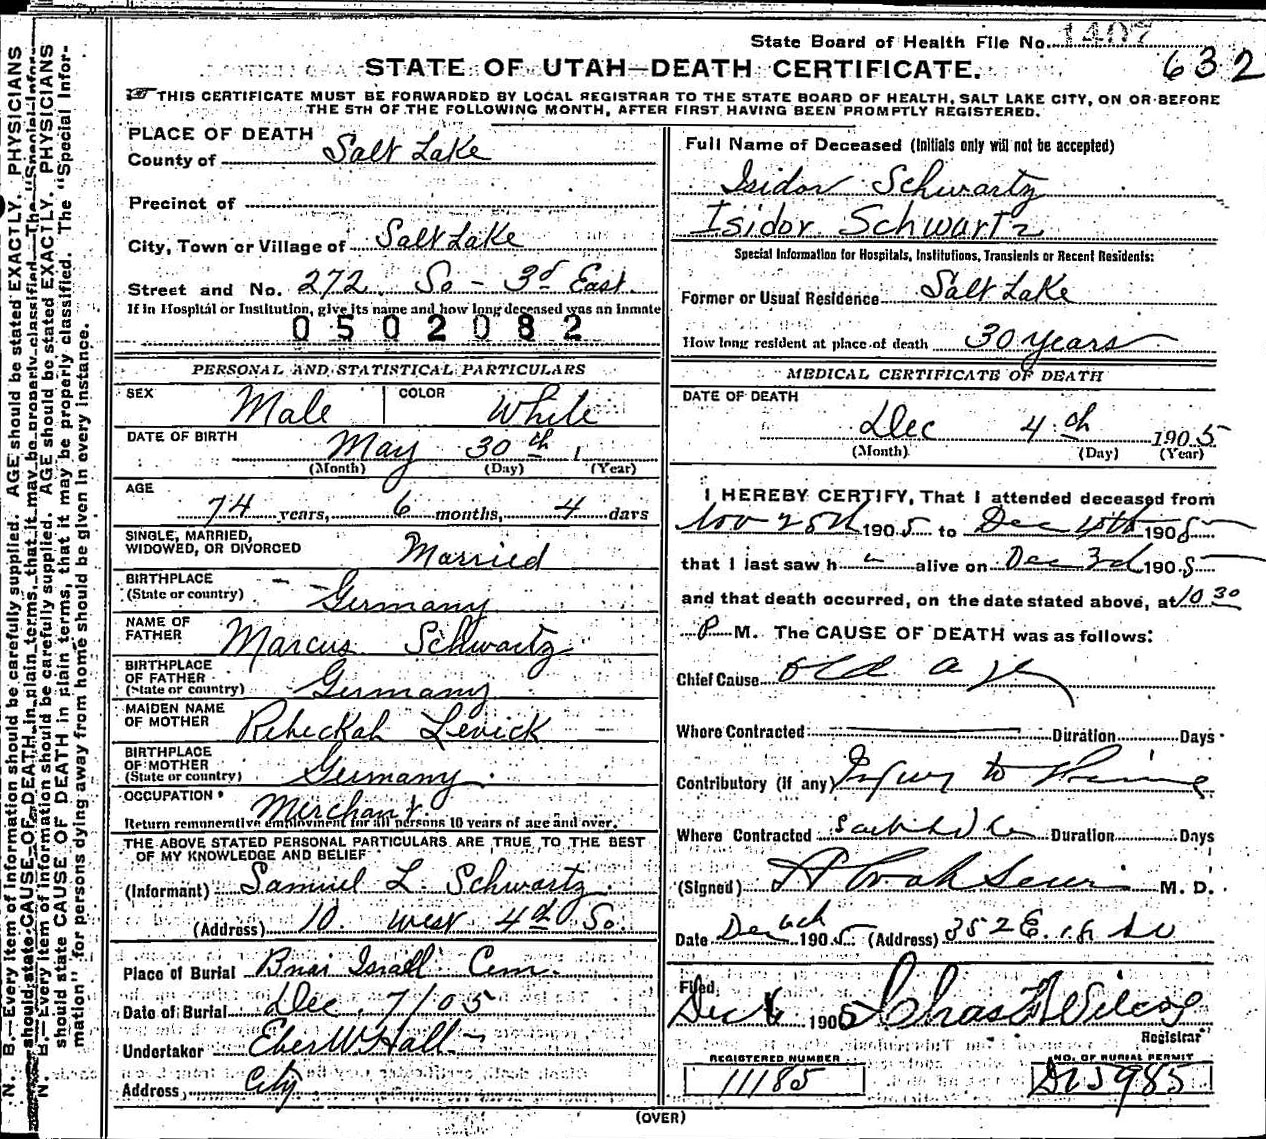 State Board of Health File No. 1407
632
STATE OF UTAH—DEATH CERTIFICATE.
THIS CERTIFICATE MUST BE FORWARDED BY LOCAL REGISTRAR TO THE STATE BOARD OF HEALTH, SALT LAKE CITY, ON OR BEFORE
THE 5TH OF THE FOLLOWING MONTH, AFTER FIRST HAVING BEEN PROMPTLY REGISTERED.
PLACE OF DEATH
County of Salt Lake
Precinct of
City, Town or Village of Salt Lake
Street and No. 272 So - 3d East.
If in Hospital or Institution, give its name and how long deceased was an inmate
0502082
PERSONAL AND STATISTICAL PARTICULARS
SEX Male COLOR White
DATE OF BIRTH May 30th 1
(Month) (Day) (Year)
AGE
74 years, 6 months, 4 days
SINGLE, MARRIED,
WIDOWED, OR DIVORCED Married
BIRTHPLACE
(State or country) Germany
NAME OF
FATHER Marcus Schwartz
BIRTHPLACE
OF FATHER
(State or country) Germany
MAIDEN NAME
OF MOTHER Rebeckah Levick
BIRTHPLACE
OF MOTHER
(State or country) Germany.
OCCUPATION Merchant
Return remunerative employment for all persons 10 years of age and over.
THE ABOVE STATED PERSONAL PARTICULARS ARE TRUE TO THE BEST
OF MY KNOWLEDGE AND BELIEF
(Informant) Samuel L. Schwartz
(Address) 10. West 4th So.
Place of Burial Bnai Israel Cem.
Date of Burial Dec 7/05
Undertaker Eber W Hall
Address, City.
Full Name of Deceased (Initials only will not be accepted)
Isidor Schwartz
Isidor Schwartz
Special Information for Hospitals, Institutions, Transients or Recent Residents:
Former or Usual Residence Salt Lake
How long resident at place of death 30 years
MEDICAL CERTIFICATE OF DEATH
DATE OF DEATH
Dec 4th 1905
(Month) (Day) (Year)
I HEREBY CERTIFY, That I attended deceased from
Nov 28th 1905 to Dec 4th 1905
that I last saw h alive on Dec 3d 1905
and that death occurred, on the date stated above, at 10 30
P M. The CAUSE OF DEATH was as follows:
Chief Cause old age
Where Contracted Duration Days
Contributory (If any) Injury to
Where Contracted Duration Days
(Signed) M. D.
Date Dec 6th 1905 (Address) 352 E.
Filed
Dec 6 1905 Chas Wilcox
Registrar
REGISTERED NUMBER
11185
NO. OF BURIAL PERMIT
5985
(OVER)
N. B.—Every item of information should be carefully supplied. AGE should be stated EXACTLY. PHYSICIANS
should state CAUSE OF DEATH in plain terms, that it may be properly classified. The "Special Infor-
N. B.—Every item of information should be carefully supplied. AGE should be stated EXACTLY. PHYSICIANS
should state CAUSE OF DEATH in plain terms, that it may be properly classified. The "Special Infor-
mation" for persons dying away from home should be given in every instance.